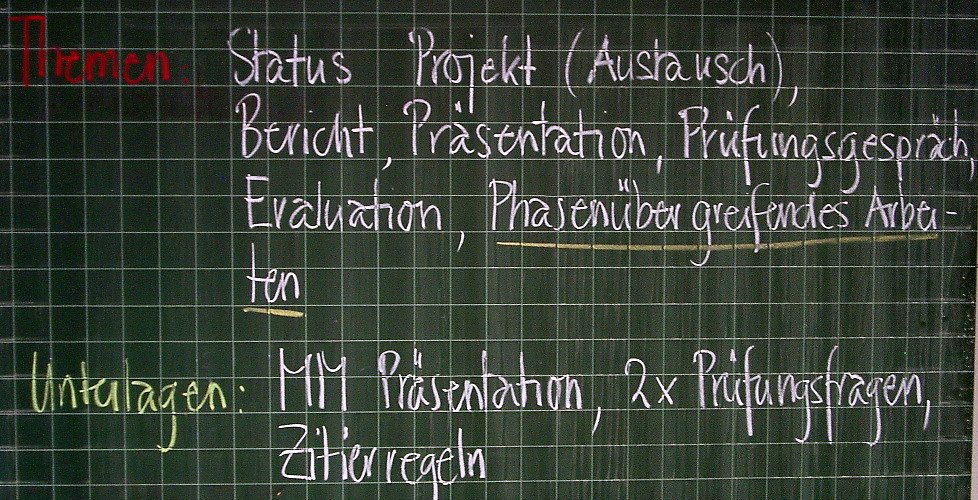 Themen: Status Projekt (Austausch),
Bericht, Präsentation, Prüfungsgespräch,
Evaluation, Phasenübergreifendes Arbei-
ten
Unterlagen: MM Präsentation, 2x Prüfungsfragen,
Zitierregeln